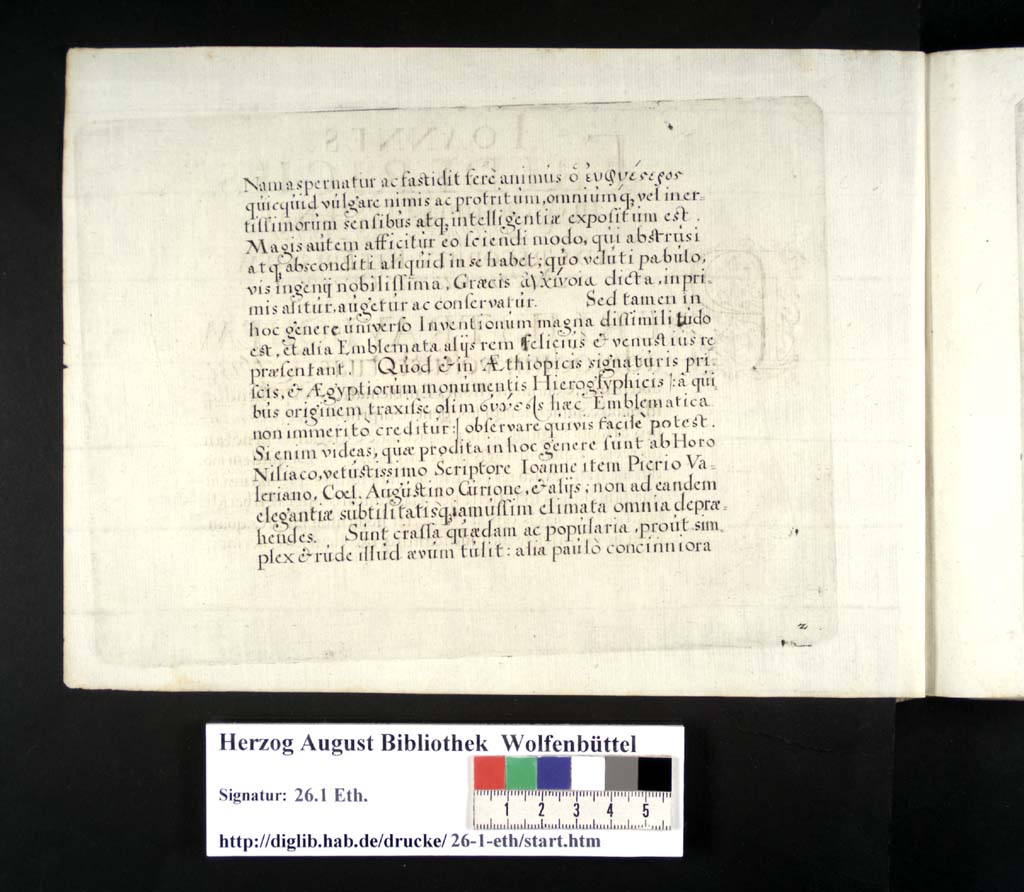 Nam aspernatur ac fastidit ferè animus ὁ εὐφυέστερος
quicquid vulgare nimis ac protritum, omniumq́; vel iner=
tissimorum sensibus atq; intelligentiæ expositum est.
Magis autem afficitur eo sciendi modo, qui abstrusi
atq; absconditi aliquid in se habet; quo veluti pabulo,
vis ingenij nobilissima, Græcis ἀγχίνοια dicta, inpri=
mis alitur, augetur ac conservatur. Sed tamen in
hoc genere universo Inventionum magna dissimilitudo
est, et alia Emblemata alijs rem felicius & venustius re
præsentant. Quod & in Æthiopicis signaturis pri=
scis, & Ægyptiorum monumentis Hieroglyphicis |: à qui
bus originem traxisse olim hæc Emblematica
non immerito creditur :| observare quivis facilè potest.
Si enim videas, quæ prodita in hoc genere sunt ab Horo
Niliaco, vetustissimo Scriptore Ioanne item Pierio Va=
leriano, Cœl. Augustino Curione, & alijs; non ad eandem
elegantiæ subtilitatisq; iamussim elimata omnia depræ=
hendes. Sunt crassa quædam ac popularia, prout sim
plex & rude illud ævum tulit: alia paulò concinniora
2
Herzog August Bibliothek Wolfenbüttel
Signatur: 26.1 Eth.
1 2 3 4 5
http://diglib.hab.de/drucke/ 26-1-eth/start.htm